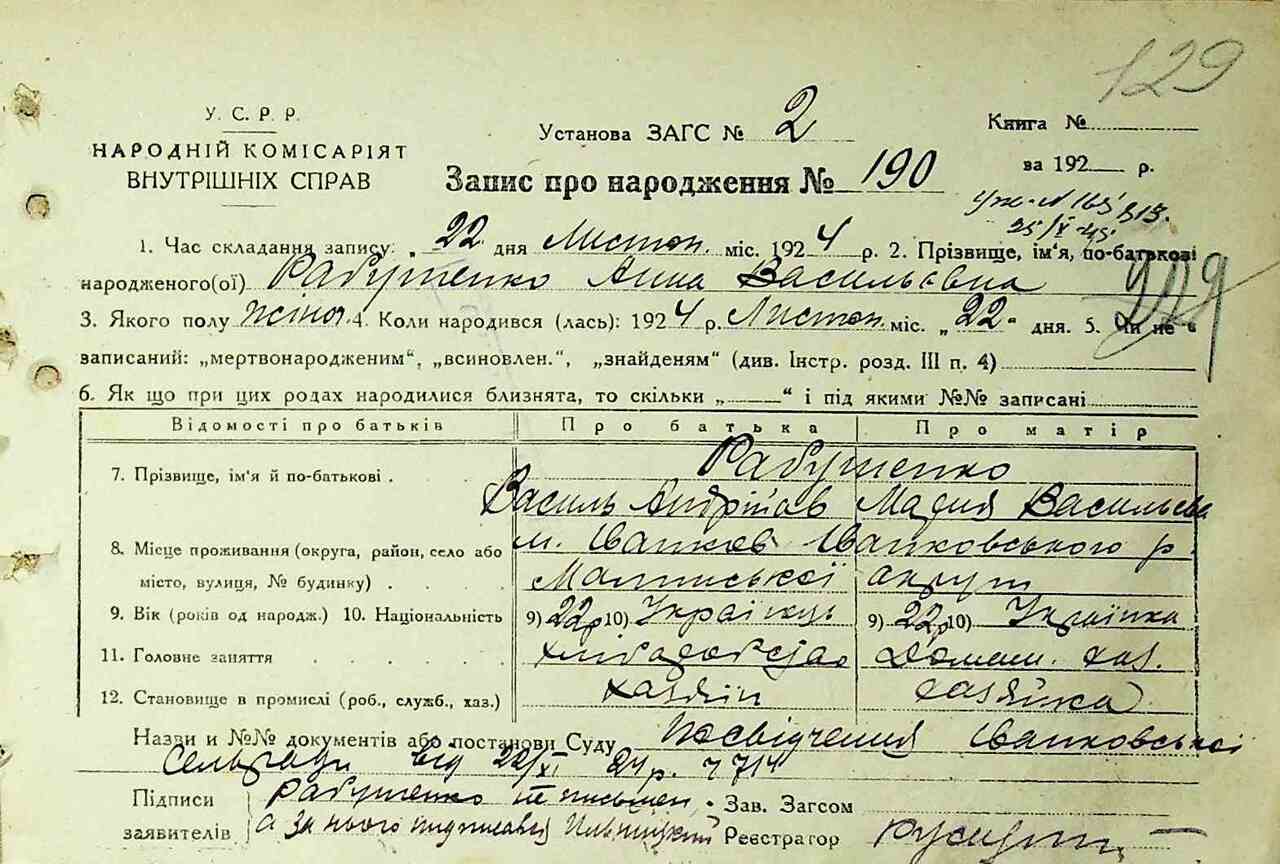 129
У. С. Р. Р.
НАРОДНІЙ КОМІСАРІЯТ
ВНУТРІШНІХ СПРАВ
Установа ЗАГС № 2
Книга №
за 192 р.
Запис про народження № 190
1. Час складання запису: 22 дня Листоп. міс. 1924 р. 2. Прізвище, ім'я, по-батькові
народженого(ої) Рабушенко Анна Васильєвна
3. Якого полу жіноч. 4. Коли народився (лась): 1924 р. Листоп. міс. „22" дня. 5. Чи не є
записаний: „мертвонародженим“, „всиновлен.“, „знайденям“ (див. Інстр. розд. III п. 4)
6. Як що при цих родах народилися близнята, то скільки „ “ і під якими №№ записані
Відомості про батьків Про батька Про матір
7. Прізвище, ім'я й по-батькові . Рабушенко
Василь Андрійов Мария Васильева
8. Місце проживання (округа, район, село або м. Іванков Іванковського р.
місто, вулиця, № будинку) . Малинської округи
9. Вік (років од народж.) 10. Національність 9) 22 р 10) Українець 9) 22 р 10) Українка
11. Головне заняття хлібаробство Домаш. хаз.
12. Становище в промислі (роб., служб., хаз.) хазяїн хазяйка
Назви и №№ документів або постанови Суду Посвідчення Іванковської
Сельради від 22/XI 24 р.
Підписи Рабушенко не письмен. Зав. Загсом
заявителів а за нього подписався Реєстратор